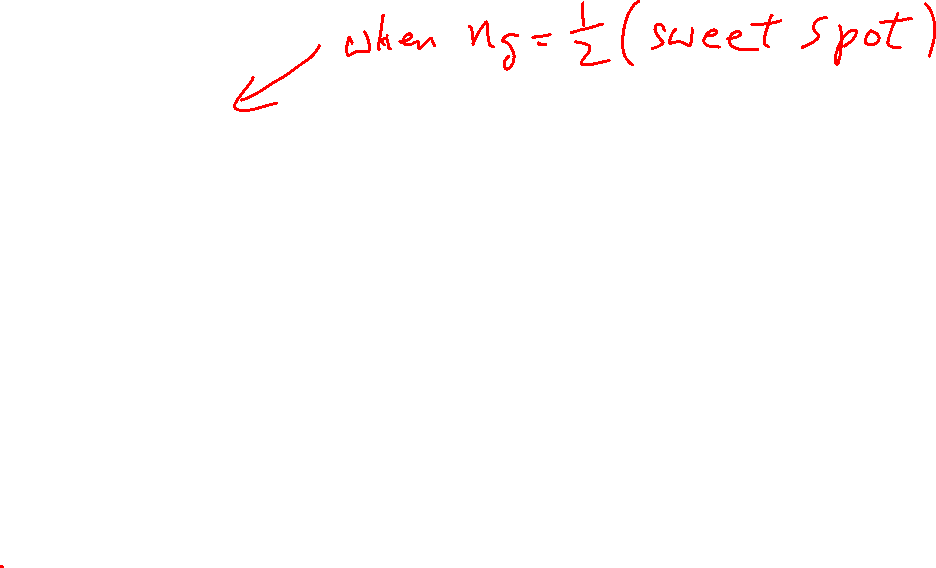 when ng = 1/2 (sweet spot)